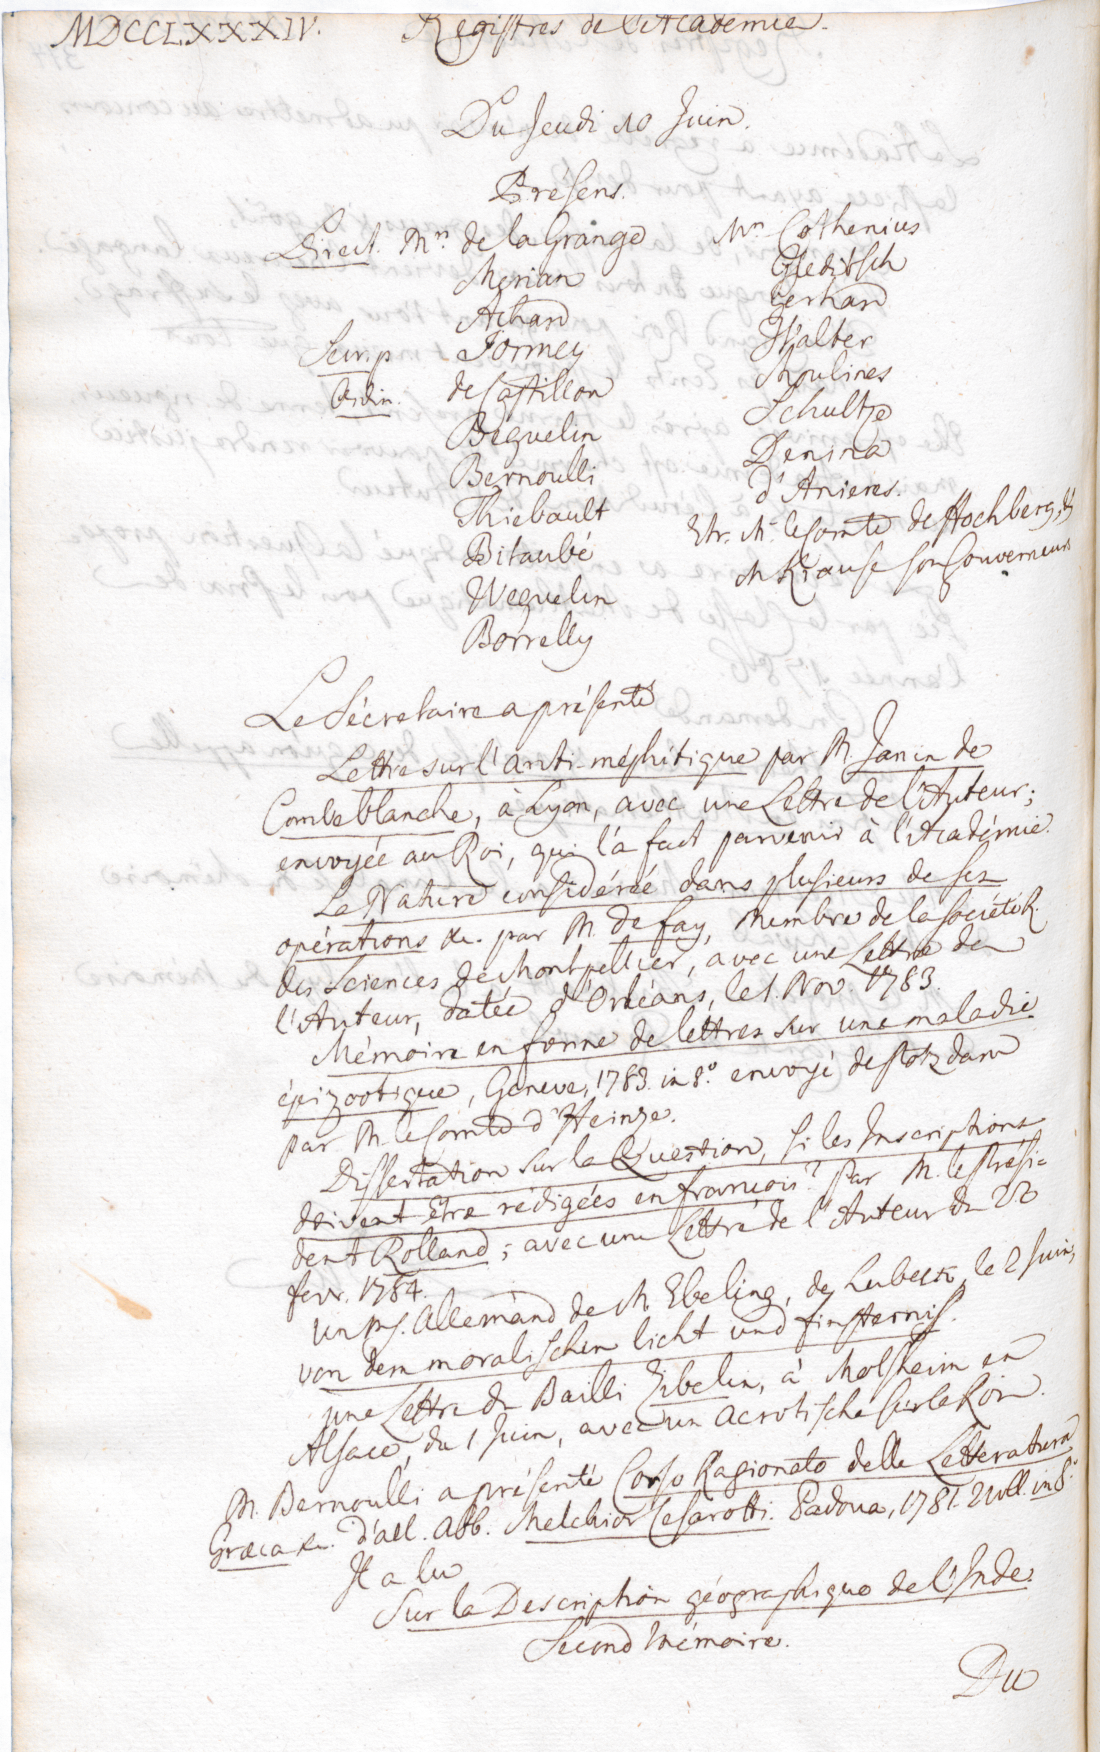 MDCCLXXXIV. Registres de l'Academie.
Du Jeudi 10 Juin.
Présens.
Direct. Mrs de la Grange
Merian
Achard
Formey
Ordin.
de Castillon
Beguelin
Bernoulli
Thiebault
Bitaubé
Weguelin
Borrelly
Mrs Cothenius
Gleditsch
Gerhard
Walter
Moulines
Schultze
Denina
d'Anieres.
Etr. Mr. le Comte de Hochberg, &
M Krause son Gouverneur
Le Sécretaire a présenté
Lettre sur l'anti-méphitique par M. Janin de
Combeblanche, à Lyon, avec une Lettre de l'Auteur;
envoyée au Roi, qui l'a fait parvenir à l'Académie.
La Nature considérée dans plusieurs de ses
opérations &c. par M. De fay, Membre de la Société R.
des Sciences de Montpellier, avec une Lettre de
l'Auteur, datée d'Orléans, le 1. Nov. 1783.
Mémoire en forme de lettres sur une maladie
épizootique, Geneve, 1783. in 8.o envoyé de Potzdam
par M. le Comte d'Heinze.
Dissertation sur la Question, si les Inscriptions
doivent être rédigées en françois? par M. le Prési=
dent Rolland; avec une Lettre de l'Auteur du 22
fevr. 1784.
Un ms. Allemand de M. Ebeling, de Lubeck, le 2 Juin,
von dem moralischen licht und finsternis.
une Lettre du Bailli Zibelin, à Molsheim en
Alsace, du 1 Juin, avec un acrostiche sur le Roi.
M. Bernoulli a présenté Corso Ragionato delle Letteratura
Græca &c. d'all. Abb. Melchior Cesarotti. Padoua, 1781. 2 voll. in 8.o
Il a lu
Sur la Description géographique de l'Inde,
Second Mémoire.
Du